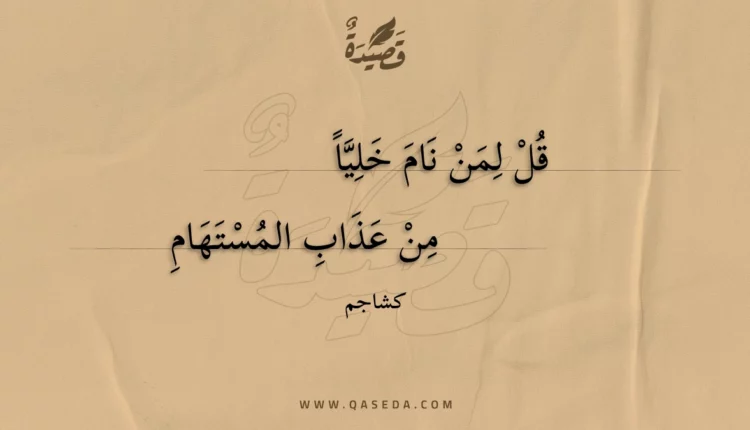 قَصِيدَةٌ
قُلْ لِمَنْ نَامَ خَلِيَّاً
مِنْ عَذَابِ المُسْتَهَامِ
كشاجم
WWW.QASEDA.COM